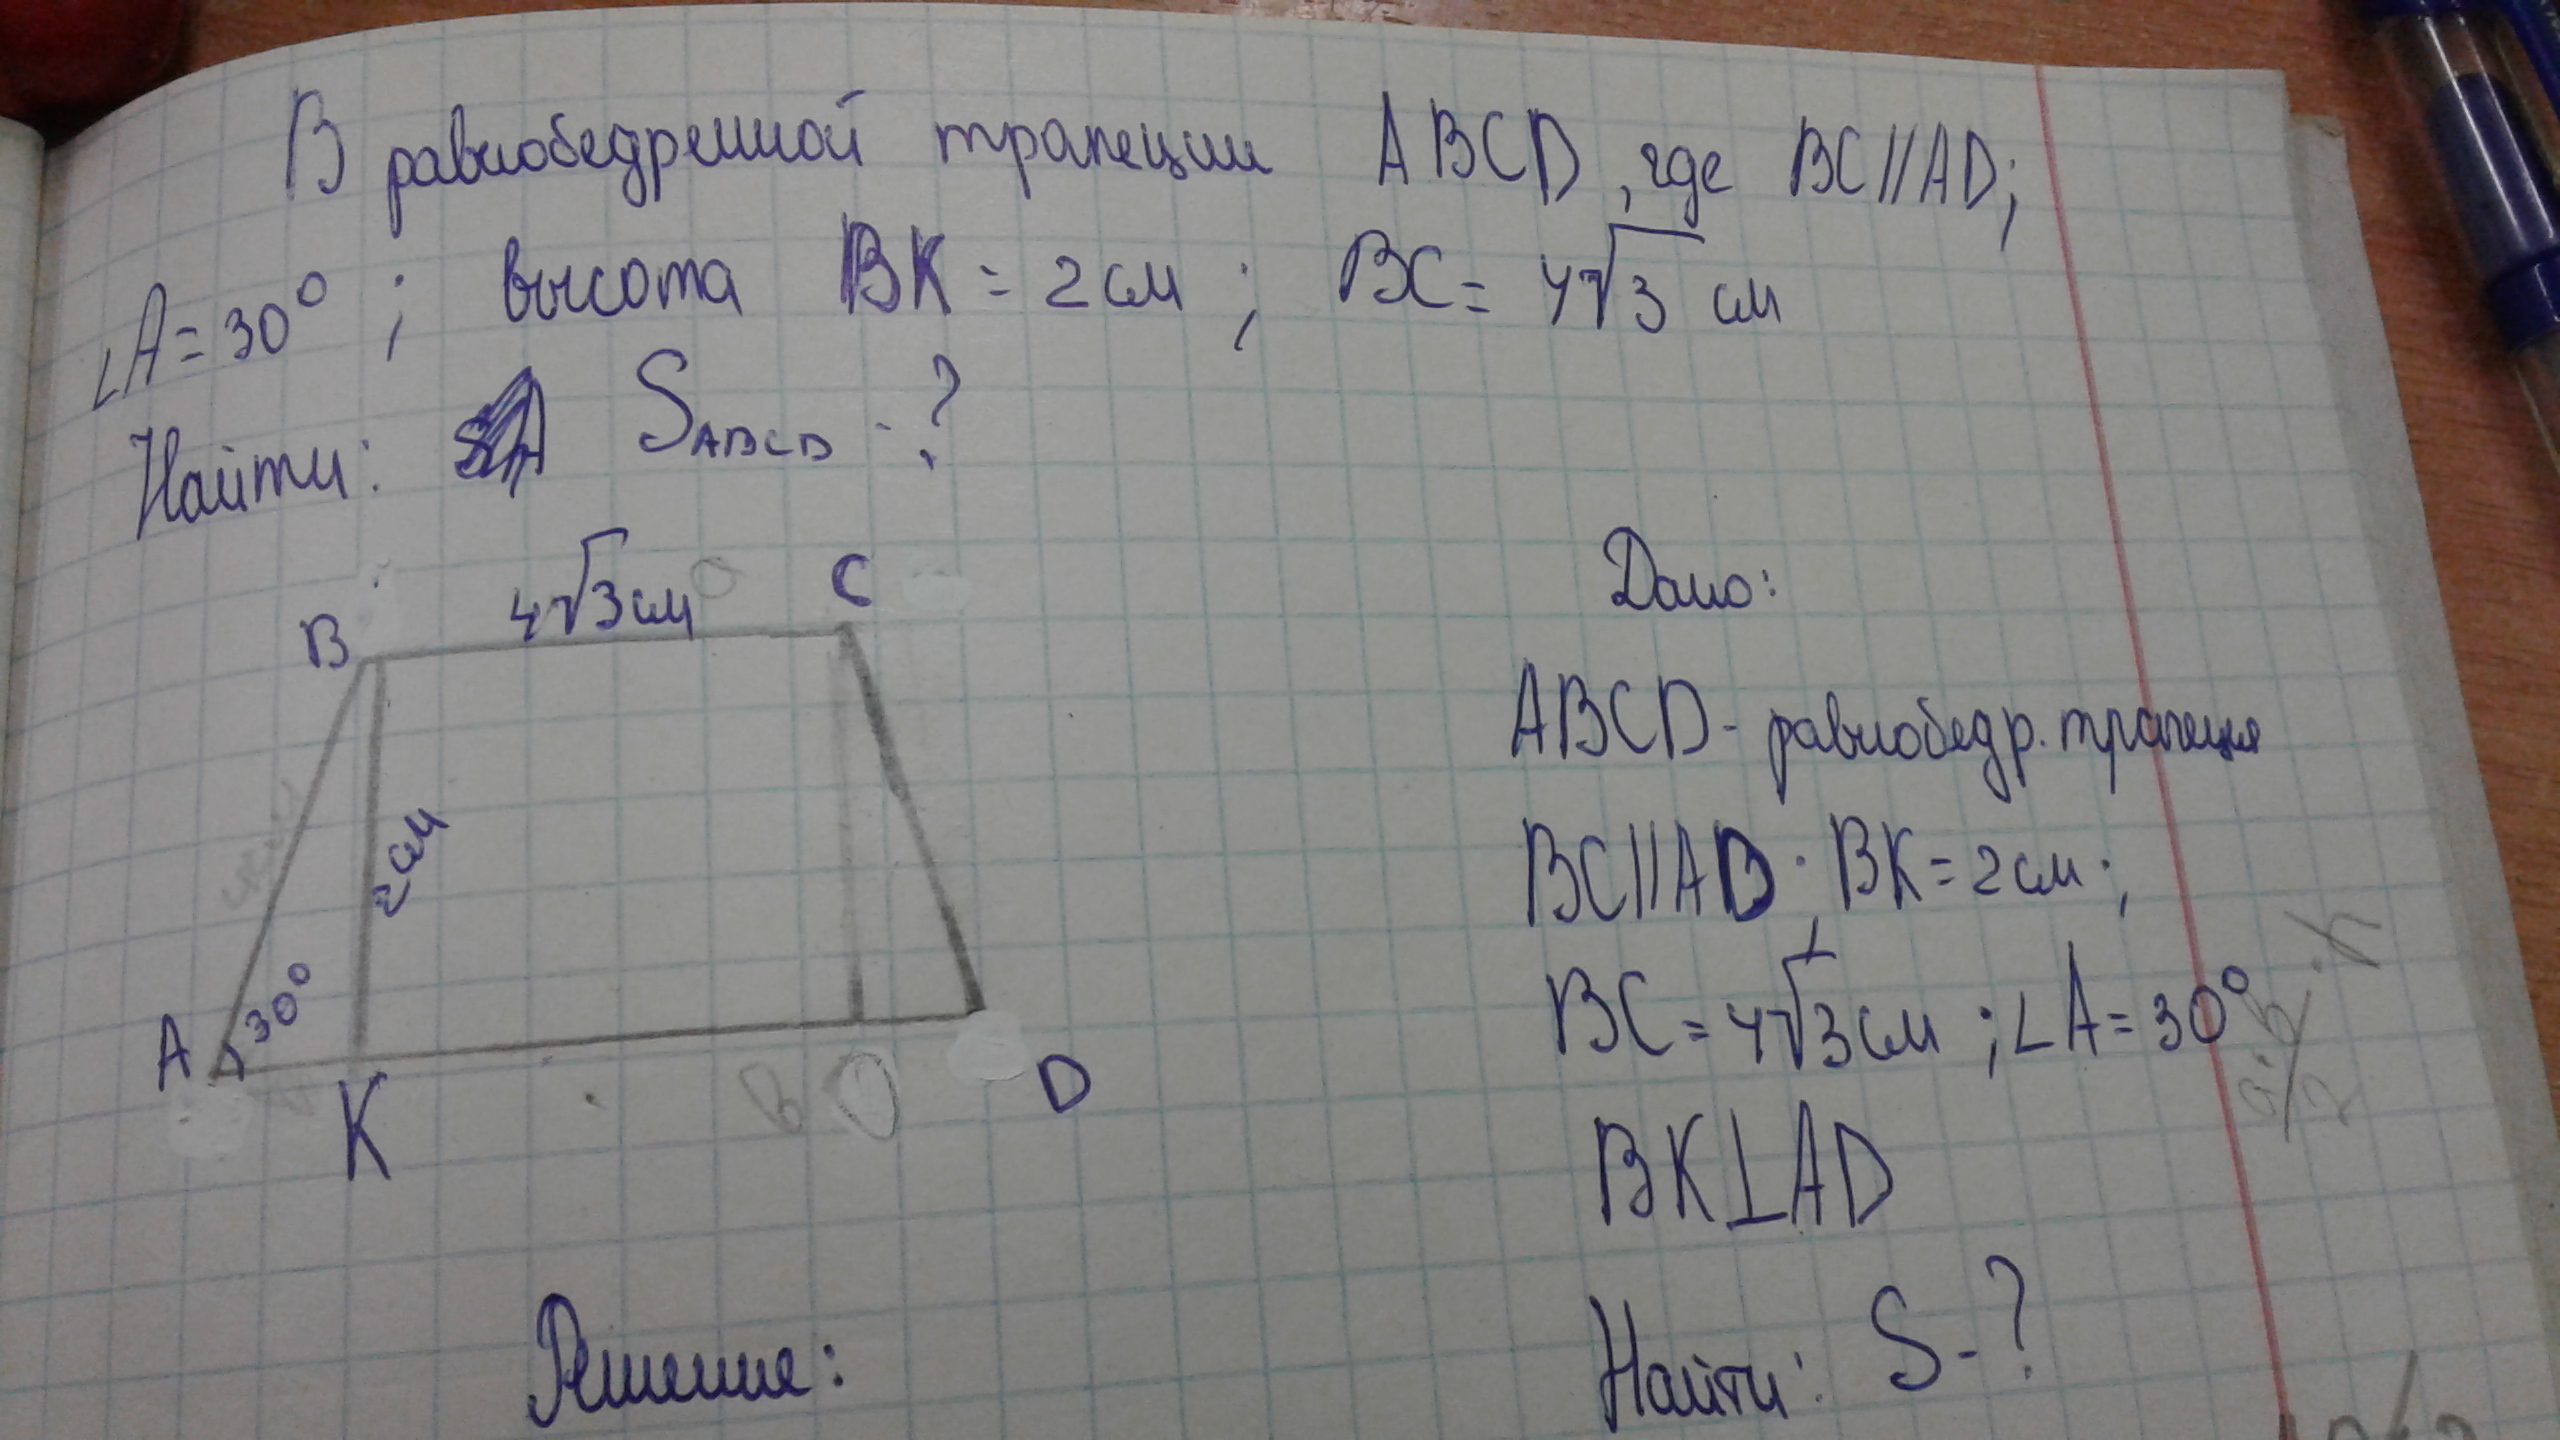 В равнобедренной трапеции ABCD, где BC||AD;
∠A=30°; высота BK = 2 см; BC= 4√3 см
Найти: S_ABCD - ?
4√3 см
B
C
2 см
30°
A
K
D
Дано:
ABCD - равнобедр. трапеция
BC||AD; BK=2 см;
BC=4√3 см; ∠A=30°
BK⊥AD
Найти: S-?
Решение: